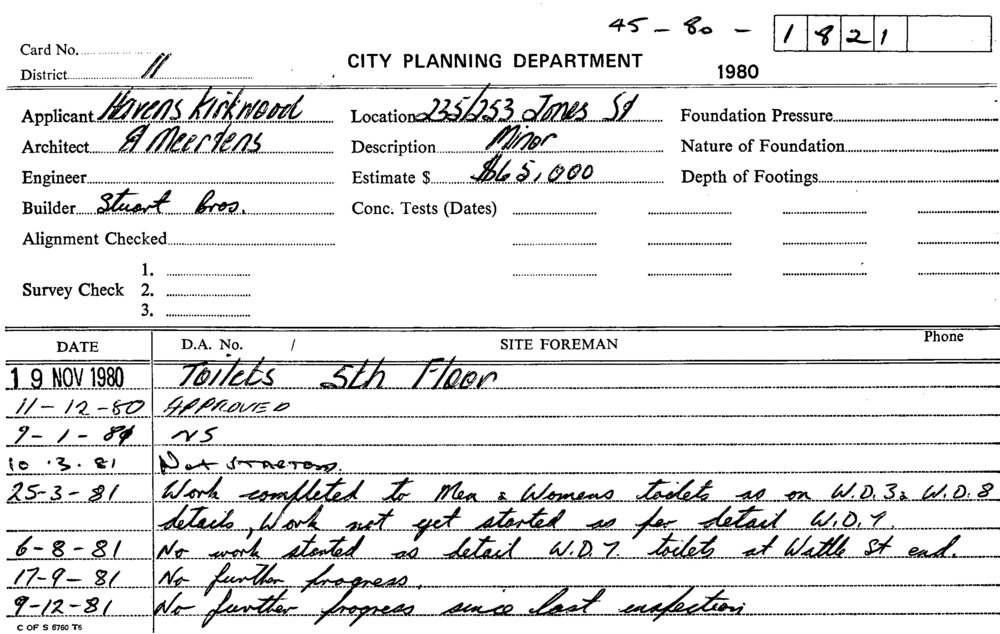 45 - 80 - 1821
Card No.
District 11
CITY PLANNING DEPARTMENT
1980
Applicant Havens Kirkwood
Location 235/253 Jones St
Foundation Pressure
Architect A Meertens
Description Minor
Nature of Foundation
Engineer
Estimate $ $65,000
Depth of Footings
Builder Stuart Bros.
Conc. Tests (Dates)
Alignment Checked
1.
Survey Check 2.
3.
DATE D.A. No. / SITE FOREMAN Phone
19 NOV 1980 Toilets 5th Floor
11-12-80 APPROVED
9-1-81 NS
10.3.81 Not STARTED.
25-3-81 Work completed to Men & Womens toilets as on W.D.3 & W.D.8
details, Work not yet started as per detail W.D.7.
6-8-81 No work started as detail W.D.7. toilets at Wattle St end.
17-9-81 No further progress.
9-12-81 No further progress since last inspection
C OF S 6760 T6